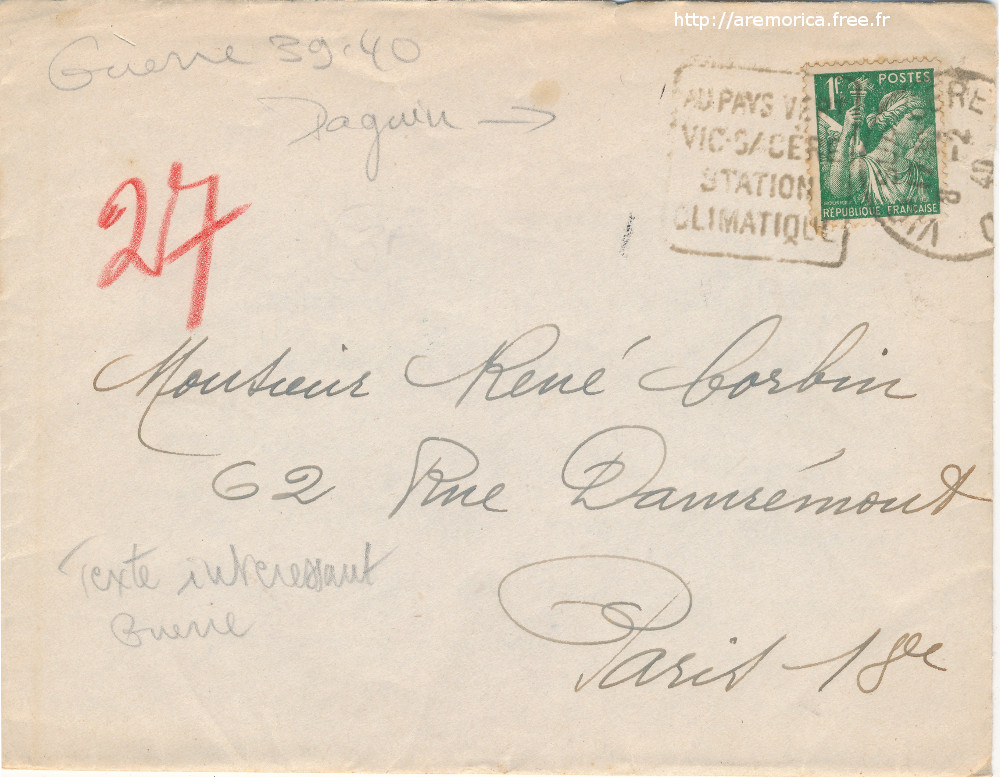 http://aremorica.free.fr
Guerre 39-40
Daguin →
AU PAYS
VIC-SUR-CÈRE
STATION
CLIMATIQUE
1F POSTES
RÉPUBLIQUE FRANÇAISE
27
Monsieur René Corbin
62 Rue Damrémont
Paris 18e
Texte intéressant
Guerre